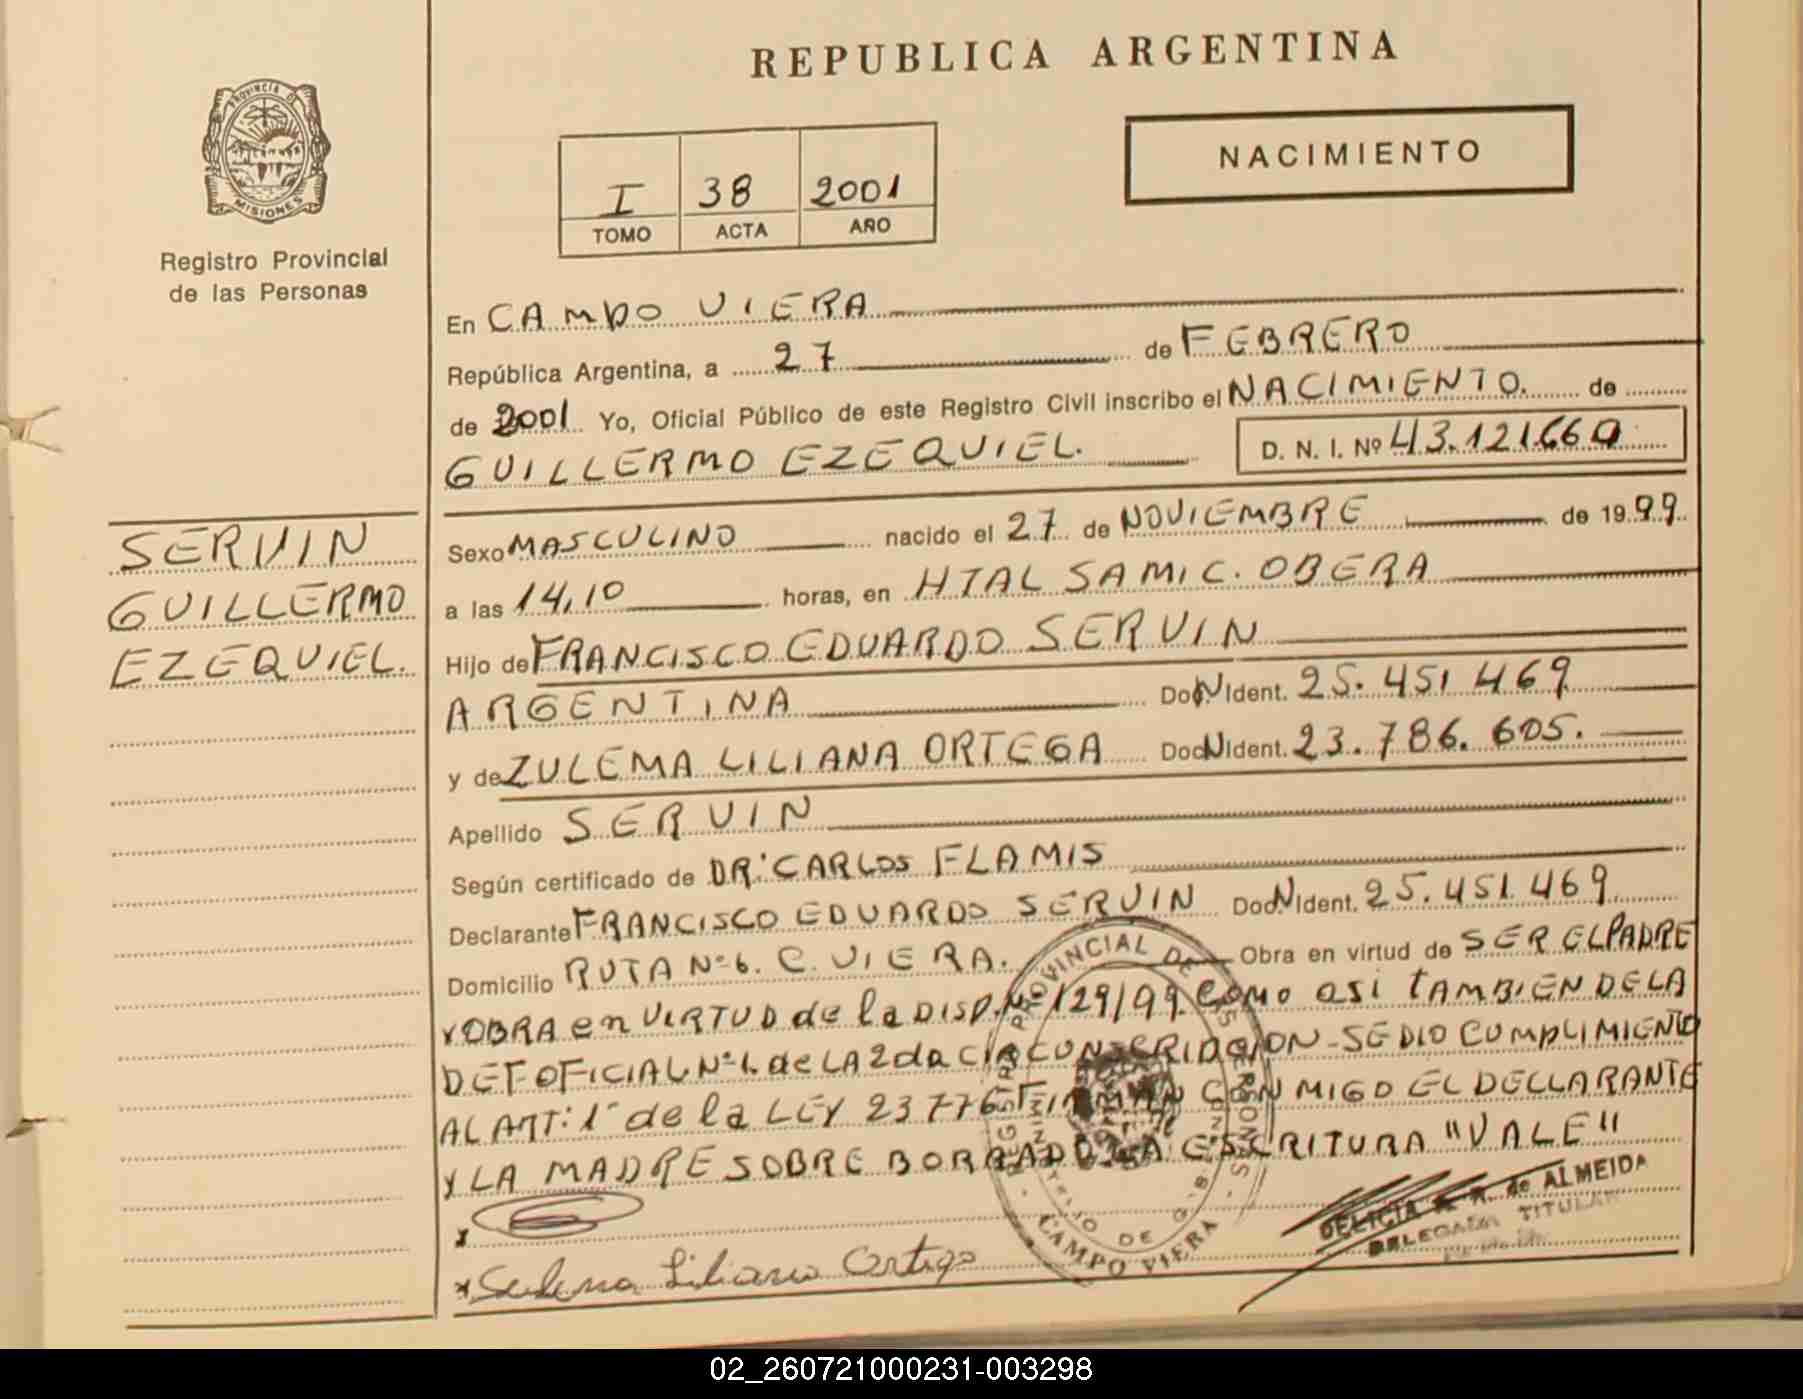 REPUBLICA ARGENTINA
PROVINCIA DE
MISIONES
Registro Provincial
de las Personas
NACIMIENTO
I 38 2001
TOMO ACTA AÑO
En CAMPO VIERA
República Argentina, a 27 de FEBRERO
de 2001 Yo, Oficial Público de este Registro Civil inscribo el NACIMIENTO. de
GUILLERMO EZEQUIEL. D. N. I. Nº 43.121.660
SERVIN
GUILLERMO
EZEQUIEL.
Sexo MASCULINO nacido el 27 de NOVIEMBRE de 1999
a las 14,10 horas, en HTAL SAMIC. OBERA
Hijo de FRANCISCO EDUARDO SERVIN
ARGENTINA Doc. N Ident. 25.451 469
y de ZULEMA LILIANA ORTEGA Doc N Ident. 23.786.605.
Apellido SERVIN
Según certificado de DR: CARLOS FLAMIS
Declarante FRANCISCO EDUARDO SERVIN Doc. N Ident. 25.451.469
Domicilio RUTA Nº 6. C. VIERA. Obra en virtud de SER EL PADRE
Y OBRA en VIRTUD de la DISP. Nº 129/99. COMO asi TAMBIEN DE LA
DEF OFICIAL Nº 1. de LA 2da - SE DIO CUMPLIMIENTO
AL ART: 1º de la LEY 23776 FIRMAN CONMIGO EL DECLARANTE
Y LA MADRE SOBRE BORRADO LA ESCRITURA "VALE"
REGISTRO PROVINCIAL DE LAS PERSONAS
CAMPO VIERA
DELICIA de ALMEIDA
DELEGADA TITULAR
x
x Liliana Ortega
02_260721000231-003298